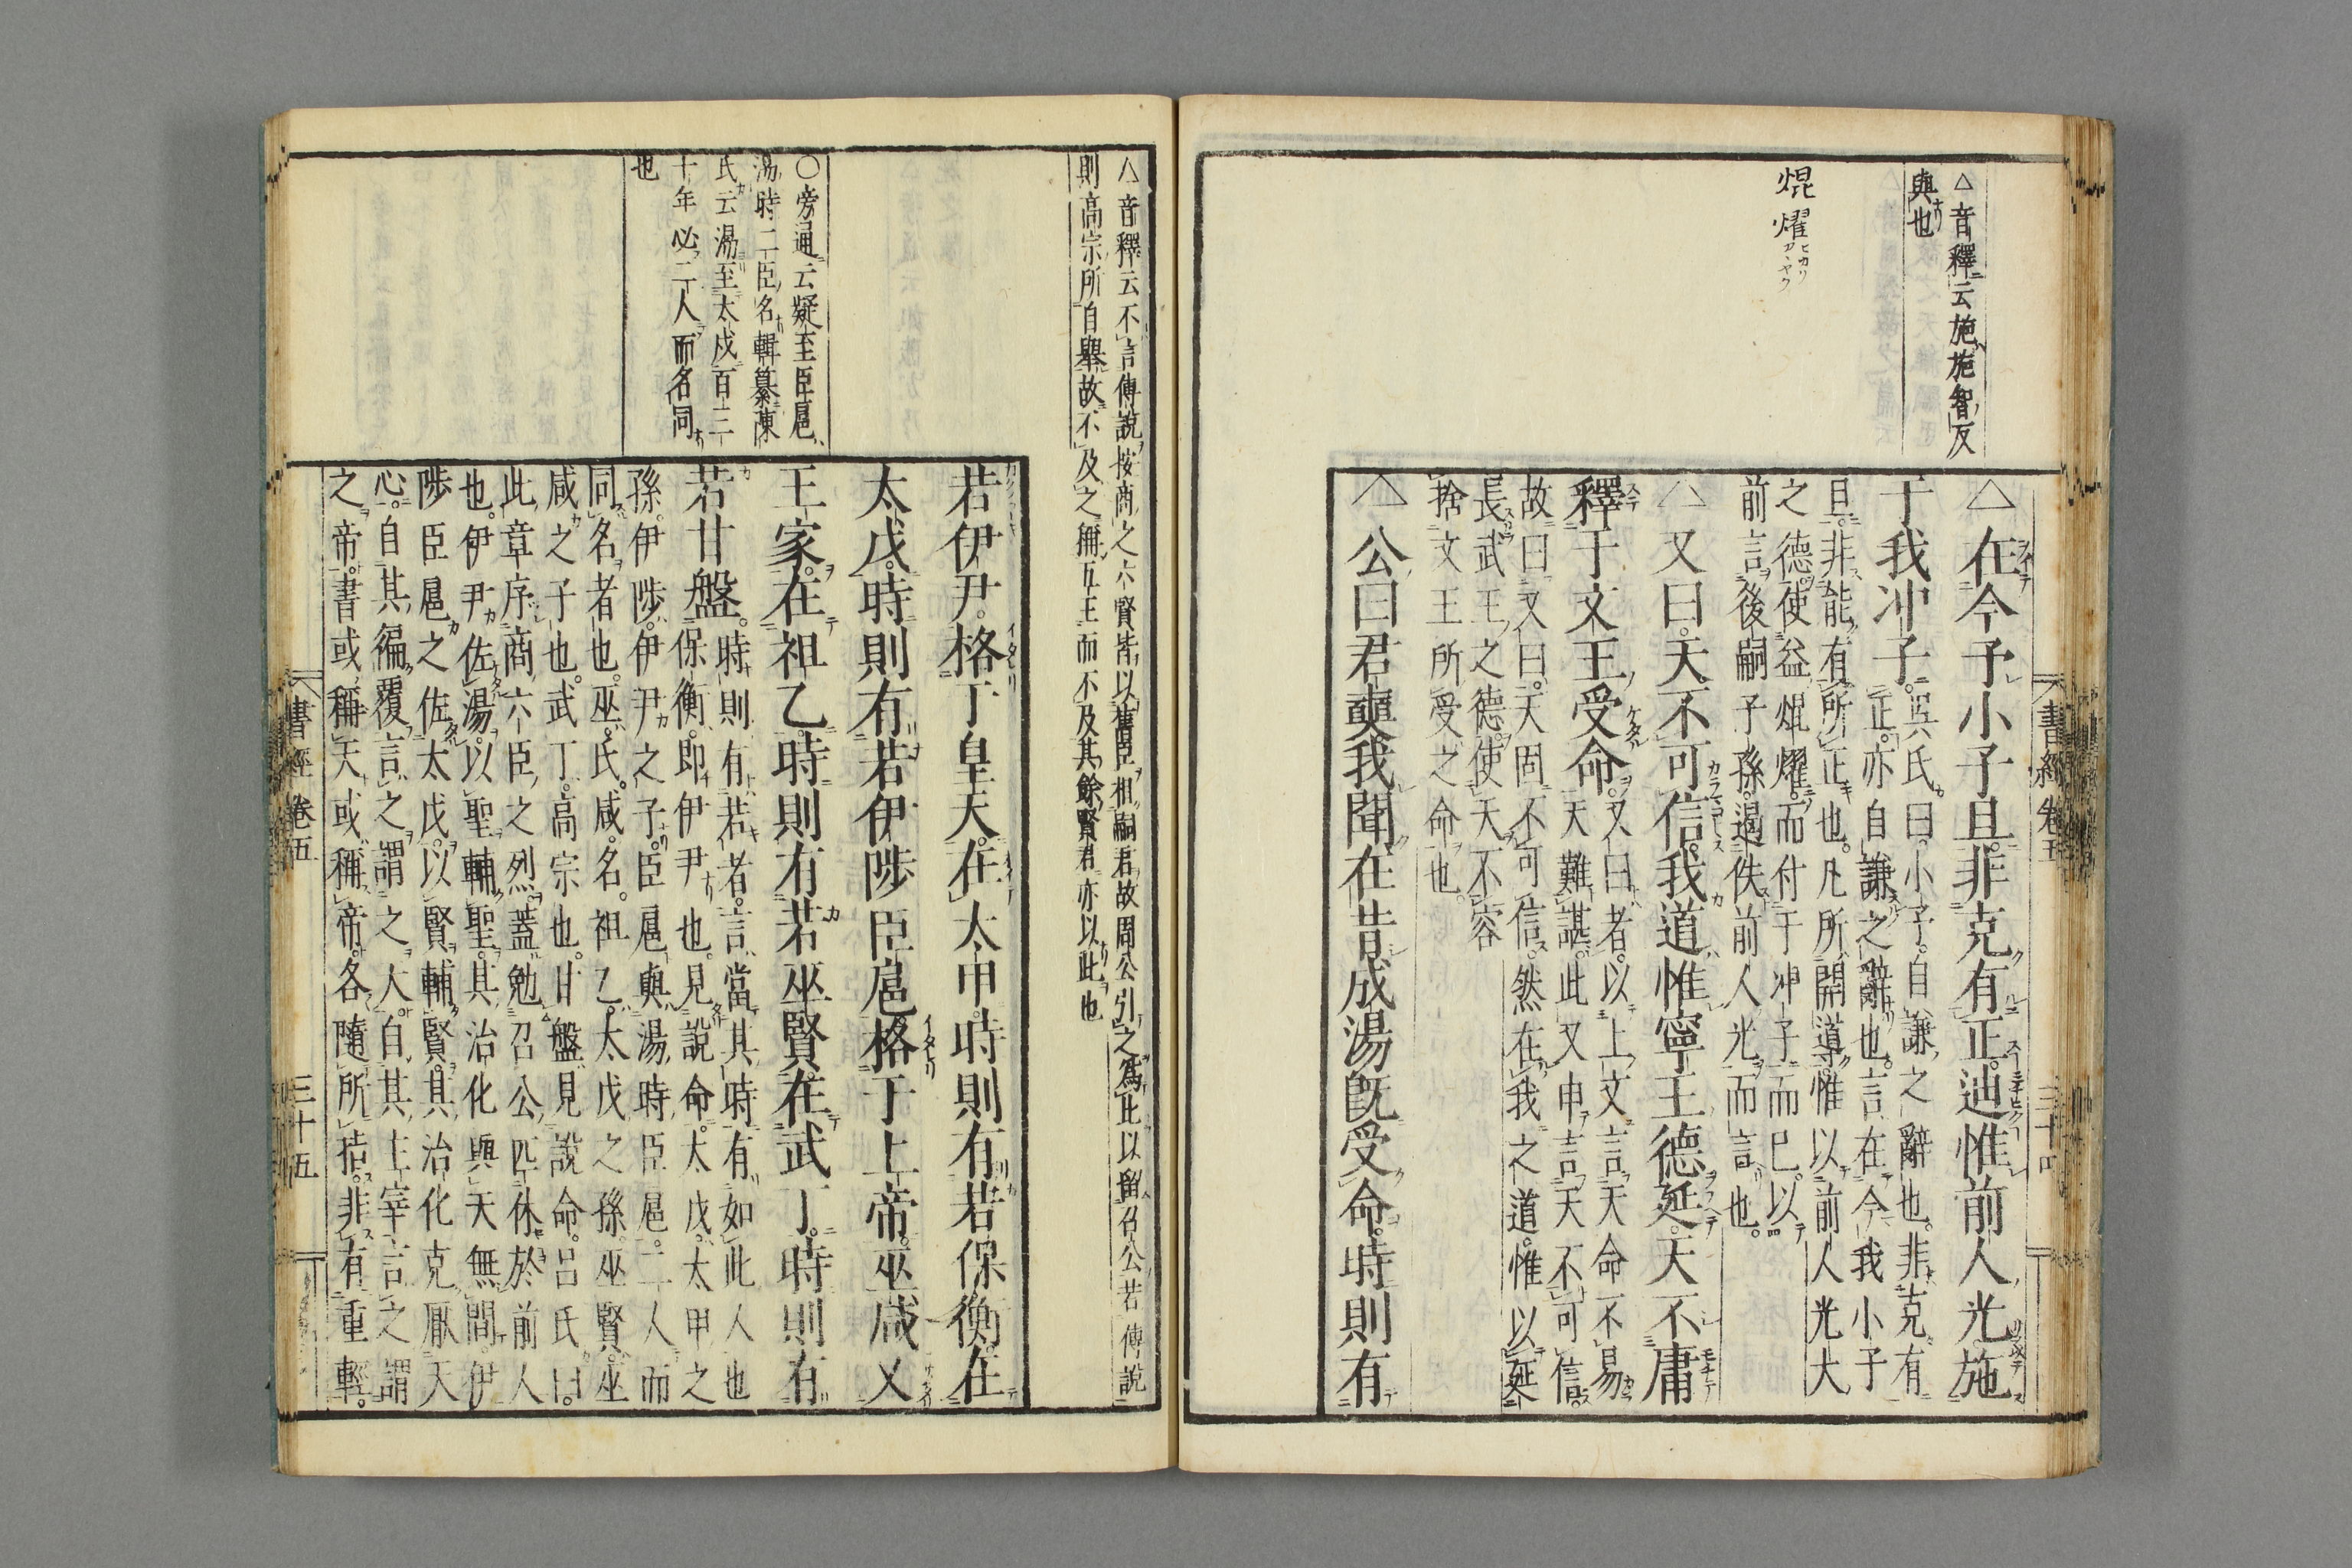 △音釋云施施智反
與也
焜燿ヒカリカヽヤク
△在今予小子旦非克有正迪惟前人光施
于我冲子吳氏曰小子自謙之辭也非克有
正亦自謙之辭也言在今我小子
旦非能有所正也凡所開導惟以前人光大
之德使益焜燿而付于冲子而已以
前言後嗣子孫遏佚前人光而言也
△又曰天不可信我道惟寧王德延天不庸
釋于文王受命又曰者以上文言天命不易
天難諶此又申言天不可信
故曰又曰天固不可信然在我之道惟以延
長武王之德使天不容
捨文王所受之命也
△公曰君奭我聞在昔成湯旣受命時則有
書經卷五
三十四
△音釋云不言傅說按商之六賢皆以舊臣相嗣君故周公引之爲比以留召公若傅說
則高宗所自舉故不及之稱五王而不及其餘賢君亦以此也
○旁通云疑至臣扈
湯時二臣名輯纂陳
氏云湯至太戊百三
十年必二人而名同
也
若伊尹格于皇天在太甲時則有若保衡在
太戊時則有若伊陟臣扈格于上帝巫咸乂
王家在祖乙時則有若巫賢在武丁時則有
若甘盤時則有若者言當其時有如此人也
保衡即伊尹也見說命太戊太甲之
孫伊陟伊尹之子臣扈與湯時臣扈二人而
同名者也巫氏咸名祖乙太戊之孫巫賢巫
咸之子也武丁高宗也甘盤見說命呂氏曰
此章序商六臣之烈蓋勉召公匹休於前人
也伊尹佐湯以聖輔聖其治化與天無間伊
陟臣扈之佐太戊以賢輔賢其治化克厭天
心自其徧覆言之謂之天自其主宰言之謂
之帝書或稱天或稱帝各隨所指非有重輕
書經卷五
三十五